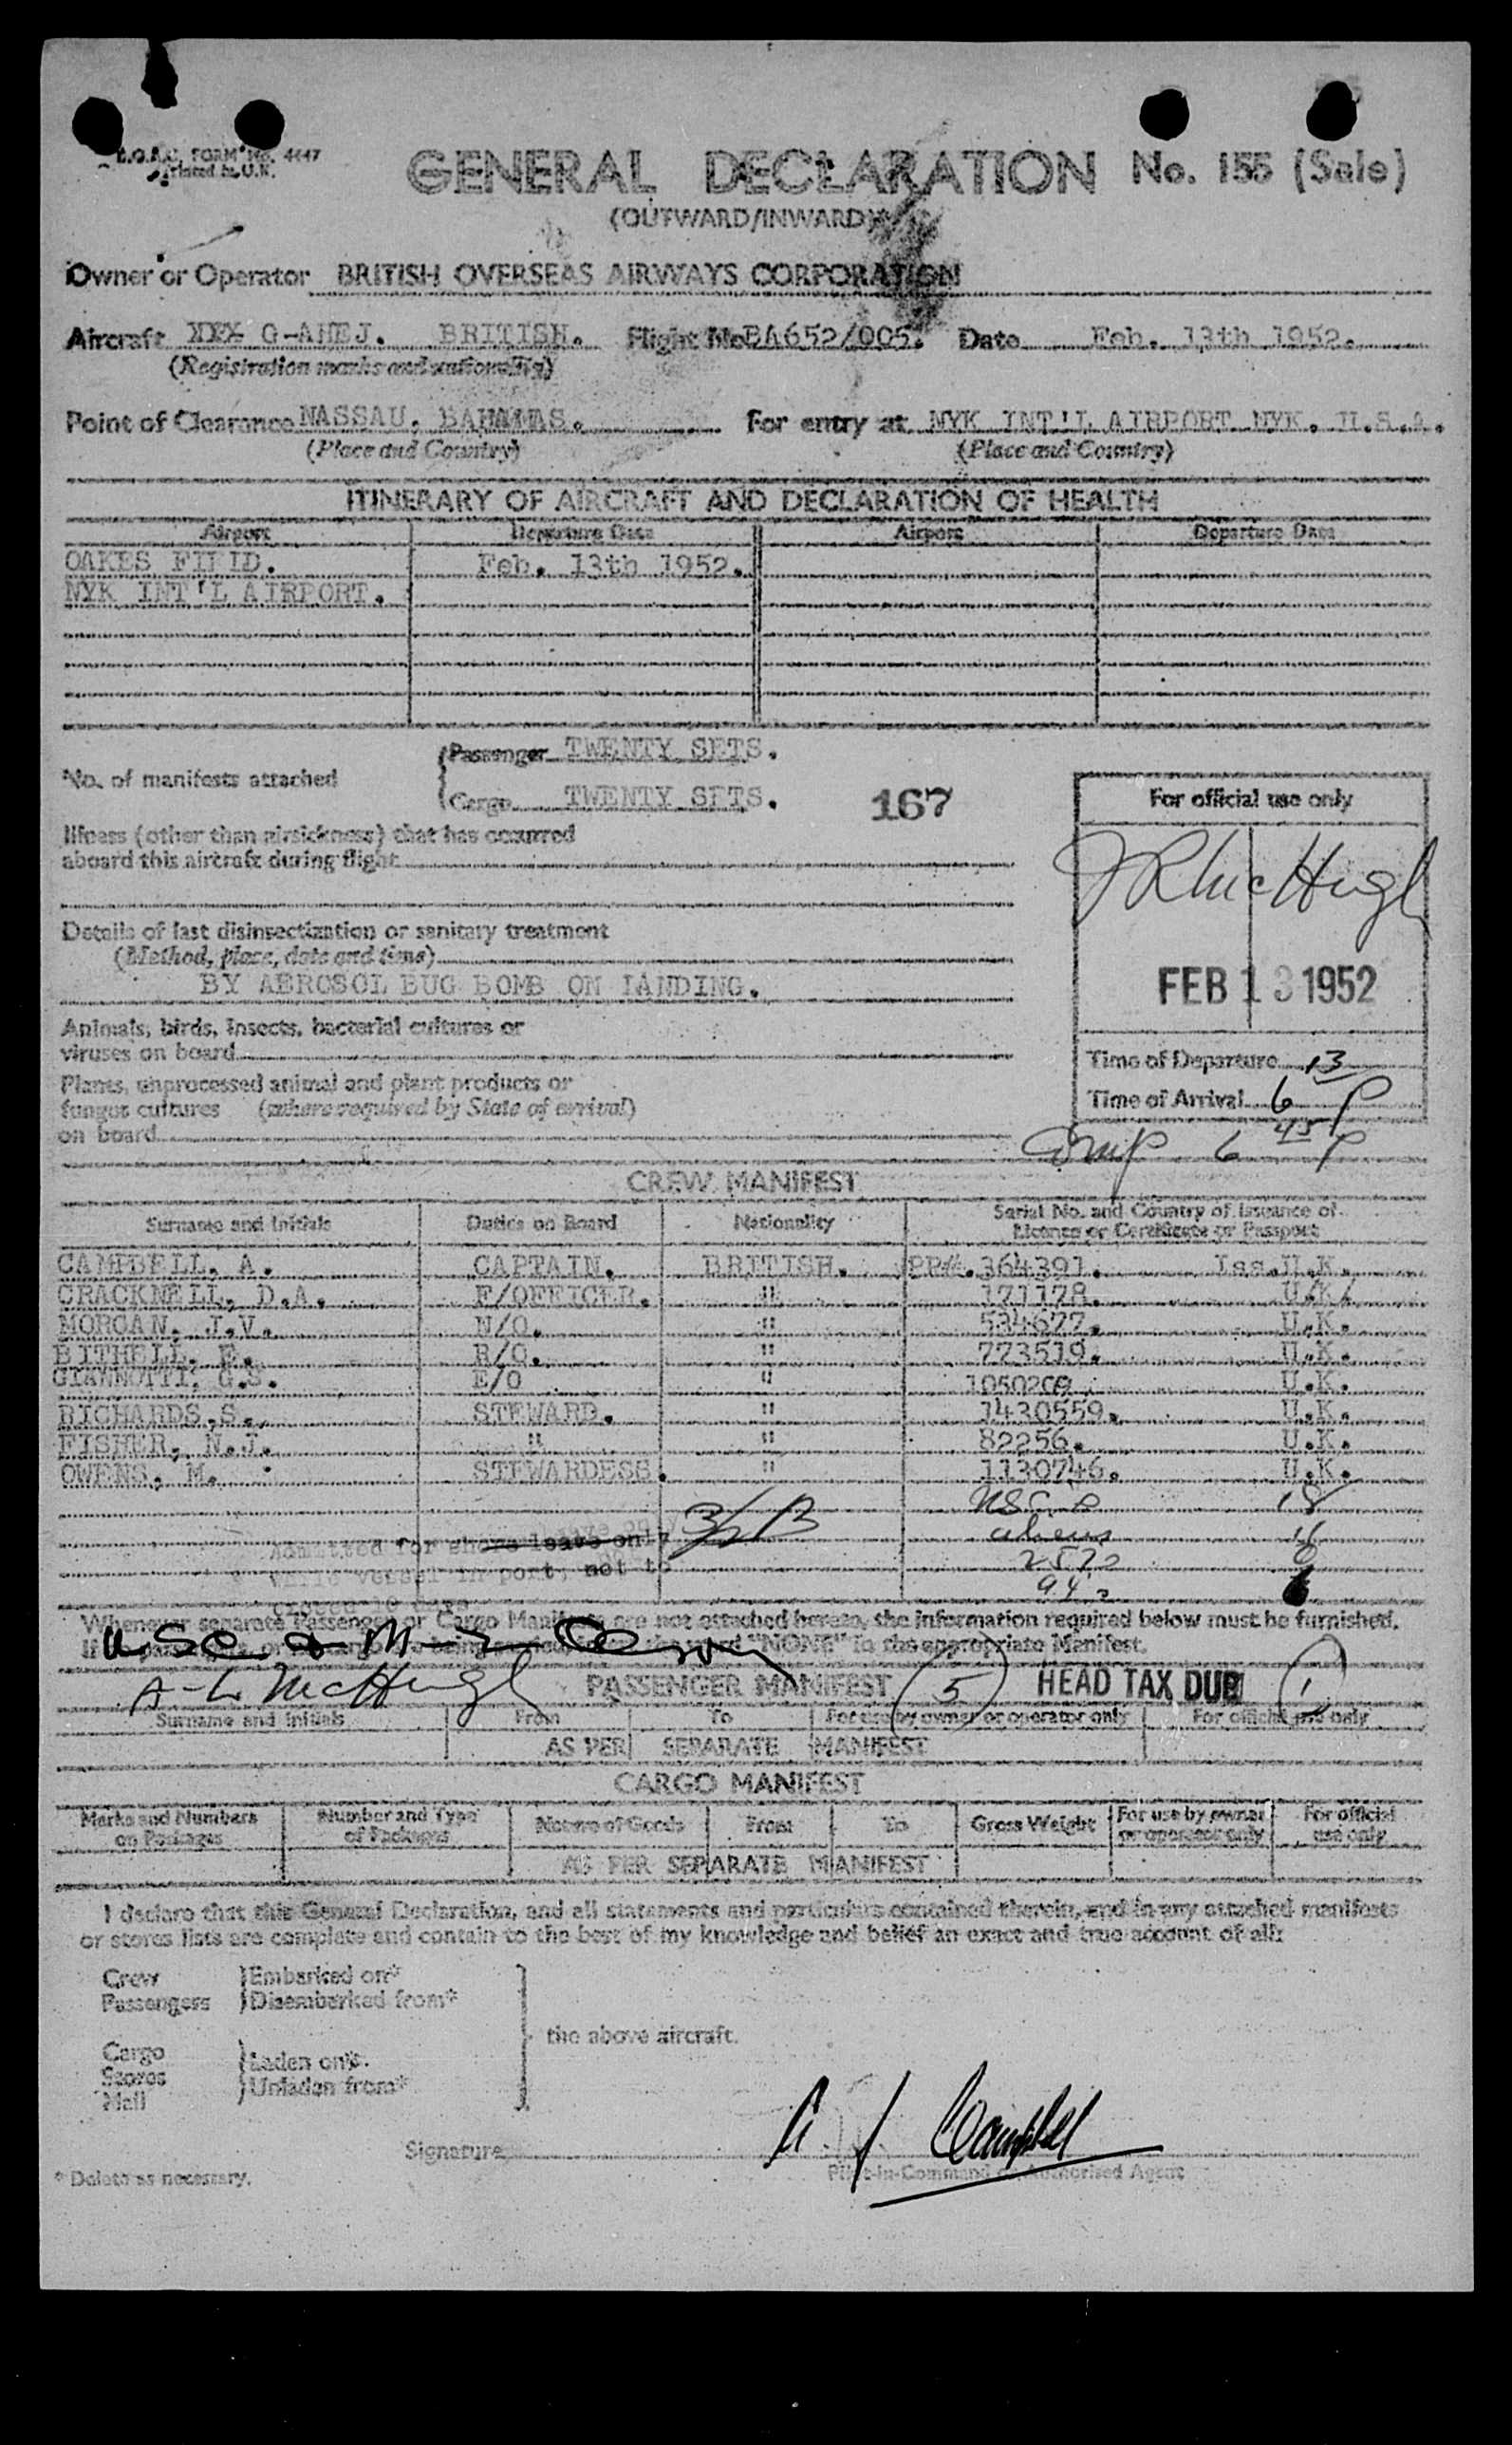 B.O.A.C. FORM No. 4447
Printed in U.K.
GENERAL DECLARATION No. 155 (Sale)
(OUTWARD/INWARD)*
Owner or Operator BRITISH OVERSEAS AIRWAYS CORPORATION
Aircraft XXX G-AHEJ. BRITISH. Flight No BA652/005. Date Feb. 13th 1952.
(Registration marks and nationality)
Point of Clearance NASSAU, BAHAMAS. For entry at NYK INT'L AIRPORT NYK. U.S.A.
(Place and Country) (Place and Country)
ITINERARY OF AIRCRAFT AND DECLARATION OF HEALTH
Airport Departure Date Airport Departure Date
OAKES FIELD. Feb. 13th 1952.
NYK INT'L AIRPORT.
No. of manifests attached
Passenger TWENTY SETS.
Cargo TWENTY SETS.
167
For official use only
Illness (other than airsickness) that has occurred
aboard this aircraft during flight
J R McHugh
Details of last disinsectization or sanitary treatment
(Method, place, date and time)
BY AEROSOL BUG BOMB ON LANDING.
FEB 13 1952
Animals, birds, insects, bacterial cultures or
viruses on board
Time of Departure 13
Plants, unprocessed animal and plant products or
fungus cultures (where required by State of arrival)
on board
Time of Arrival 6 P
Comp 6 45 P
CREW MANIFEST
Surname and Initials Duties on Board Nationality Serial No. and Country of Issuance of
Licence or Certificate or Passport
CAMPBELL, A. CAPTAIN. BRITISH. PP#.364391. Iss.U.K.
CRACKNELL, D.A. F/OFFICER. " 171178. U.K/
MORGAN, J.V. N/O. " 534677. U.K.
BITHELL, E. R/O. " 773519. U.K.
GIANNOTTI, G.S. E/O " 1050209 U.K.
RICHARDS,S. STEWARD. " 1430559. U.K.
FISHER, N.J. " " 82256. U.K.
OWENS, M. STEWARDESS. " 1130746. U.K.
USC's 18
aliens 16
Admitted for shore leave only
while vessel in port, not to
exceed 29 days
Whenever separate Passenger or Cargo Manifests are not attached hereto, the information required below must be furnished.
"NONE" in the appropriate Manifest.
A-L McHugh
PASSENGER MANIFEST (5) HEAD TAX DUE (1)
Surname and Initials From To For use by owner or operator only For official use only
AS PER SEPARATE MANIFEST
CARGO MANIFEST
Marks and Numbers on Packages Number and Type of Packages Nature of Goods From To Gross Weight For use by owner or operator only For official use only
AS PER SEPARATE MANIFEST
I declare that this General Declaration, and all statements and particulars contained therein, and in any attached manifests
or stores lists are complete and contain to the best of my knowledge and belief an exact and true account of all:
Crew
Passengers
Embarked on*
Disembarked from*
the above aircraft.
Cargo
Stores
Mail
Laden on*.
Unladen from*
Signature A. J Campbell
Pilot-in-Command or Authorised Agent
* Delete as necessary.